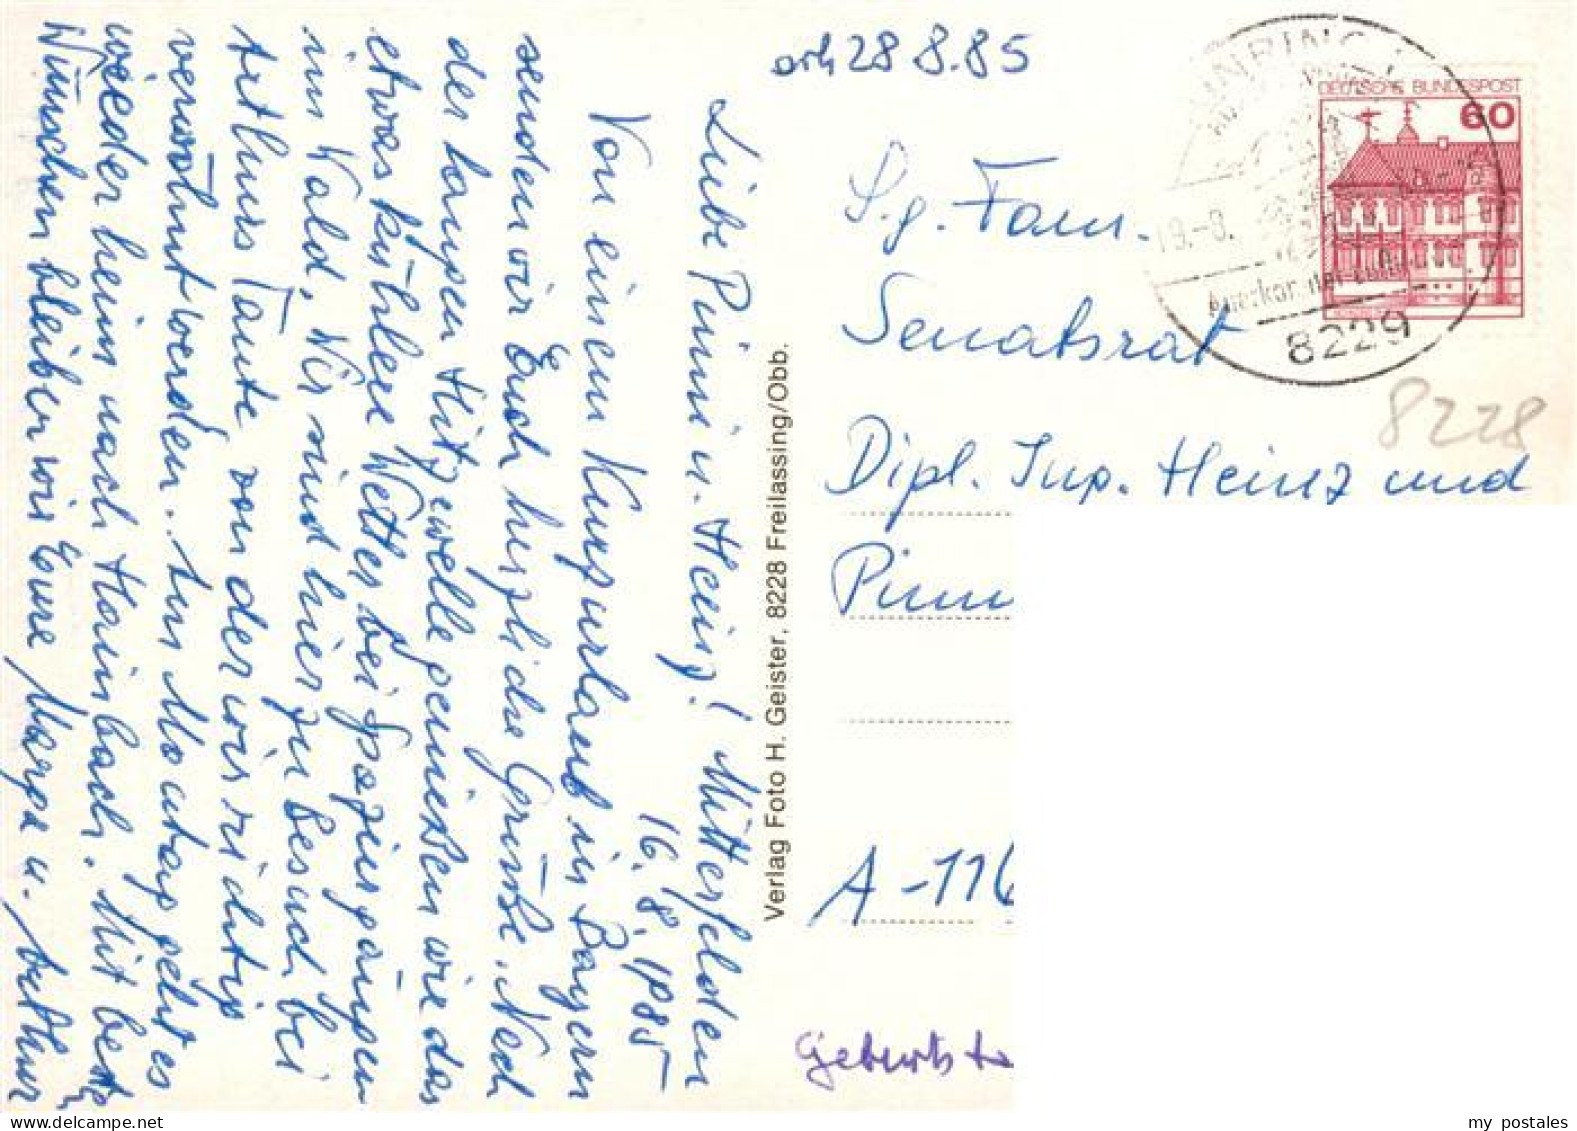 Liebe Pinni u. Heinz! Mitterfelden
16.8.1985
Von einem Kurzurlaub in Bayern
senden wir Euch herzliche Grüße. Nach
der langen Hitzewelle genießen wir das
etwas kühlere Wetter bei Spaziergängen
im Wald. Wir sind hier zu Besuch bei
Arthurs Tante von der wir richtig
verwöhnt werden. Am Montag geht es
wieder heim nach Hainbach. Mit besten
Wünschen bleiben wir Eure Marga u. Arthur
Verlag Foto H. Geister, 8228 Freilassing/Obb.
erh 28 8.85
DEUTSCHE BUNDESPOST
60
19.-8.
8229
8228
S.g. Fam.
Senatsrat
Dipl. Ing. Heinz und
A-116
Geburtsta
my postales